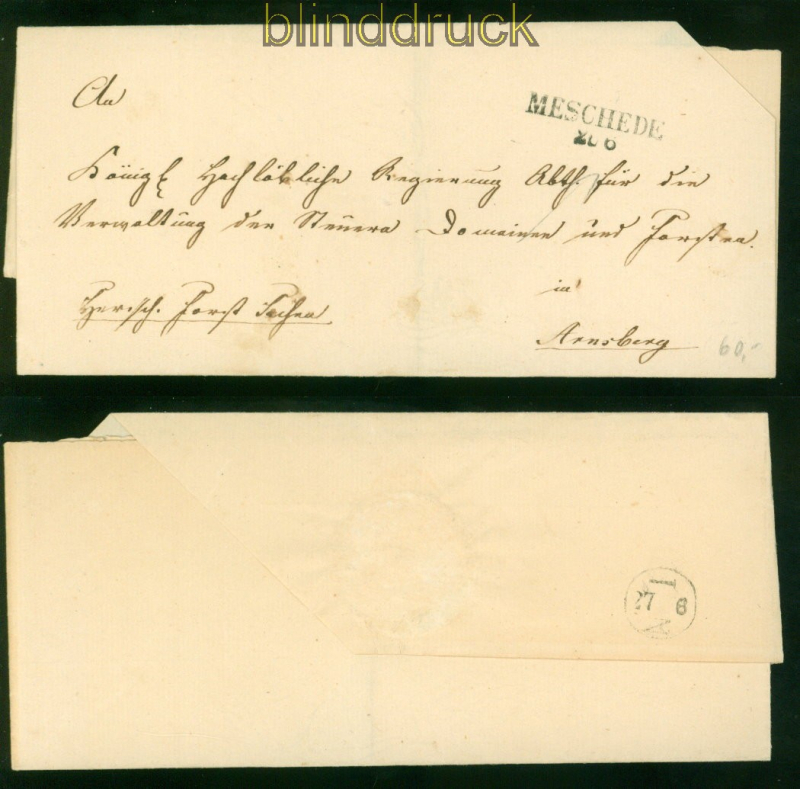 blinddruck
An
MESCHEDE
6
Königl Hochlöbliche Regierung Abth. für die
Verwaltung der Steuern Domainen und Forsten.
in
Herrsch. Forst Sachen
Arnsberg
60,-
27 6